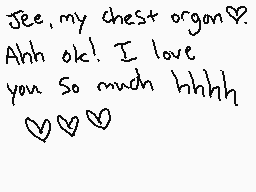 Jee, my chest organ♡.
Ahh ok! I love
you so much hhhh
♡♡♡